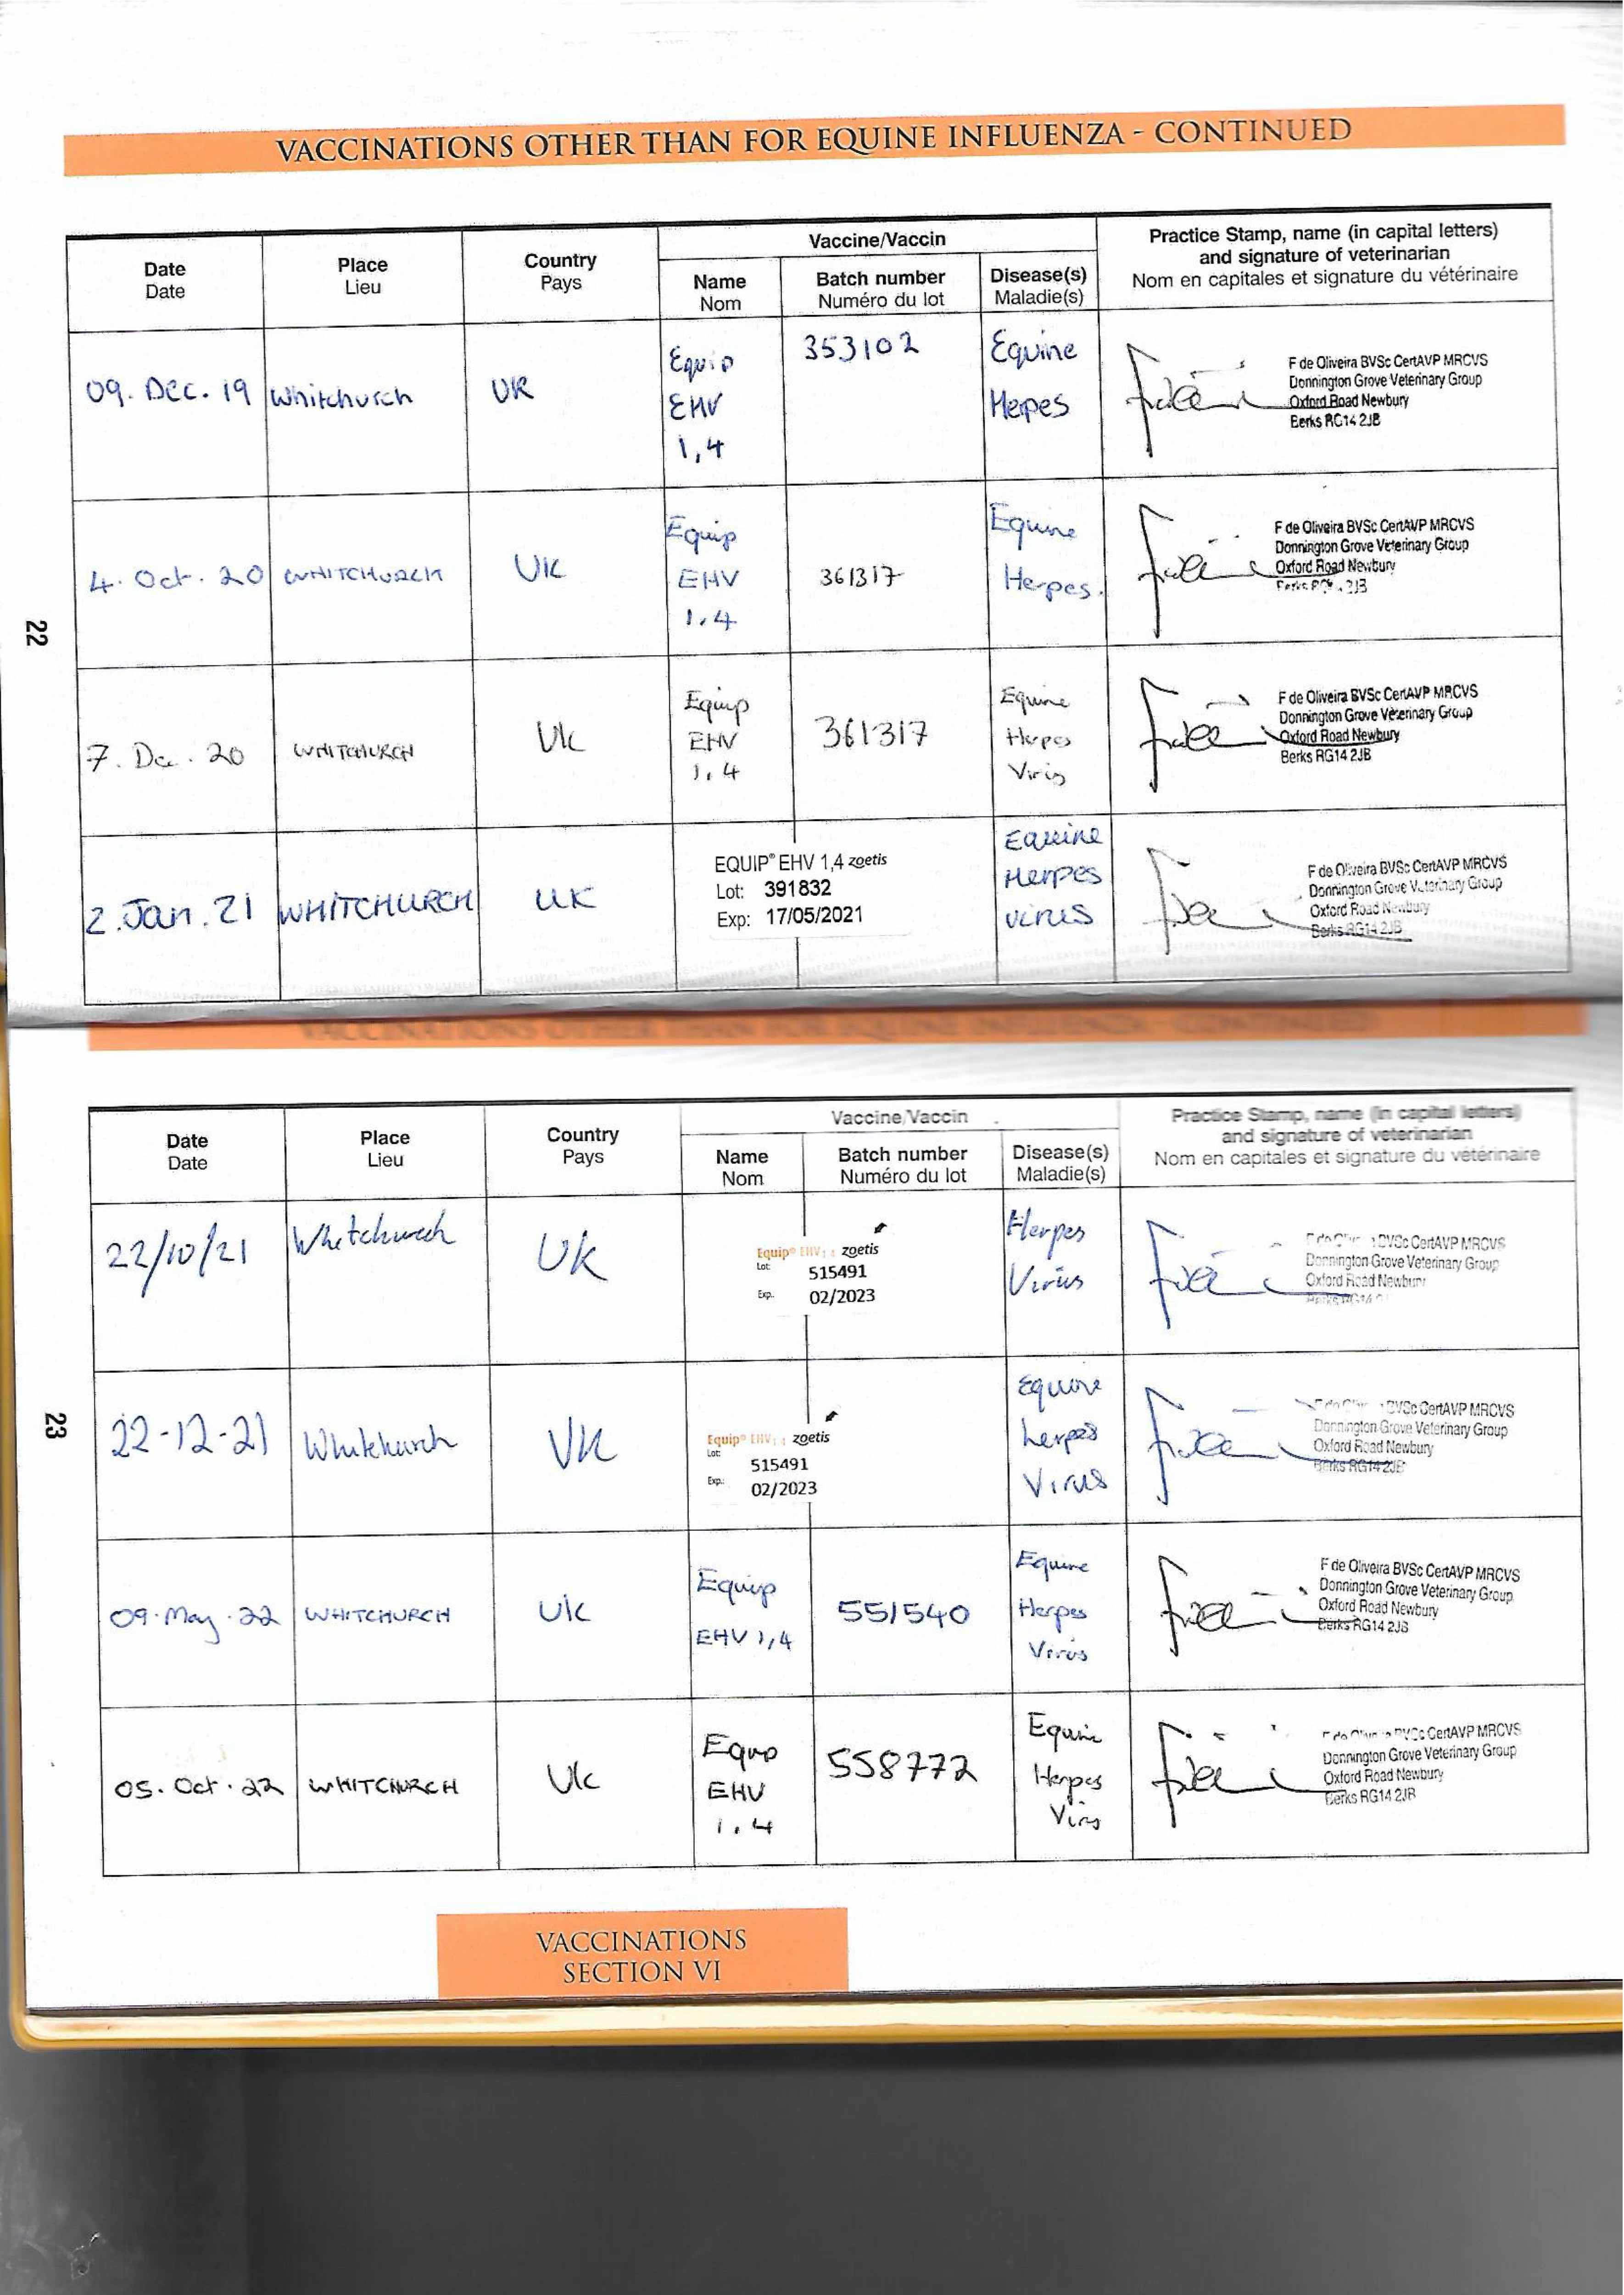 VACCINATIONS OTHER THAN FOR EQUINE INFLUENZA - CONTINUED
Vaccine/Vaccin
Date
Date
Place
Lieu
Country
Pays
Name
Nom
Batch number
Numéro du lot
Disease(s)
Maladie(s)
Practice Stamp, name (in capital letters)
and signature of veterinarian
Nom en capitales et signature du vétérinaire
09. Dec. 19
Whitchurch
UK
Equip
EHV
1,4
353102
Equine
Herpes
F de Oliveira BVSc CertAVP MRCVS
Donnington Grove Veterinary Group
Oxford Road Newbury
Berks RG14 2JB
4. Oct. 20
WHITCHURCH
UK
Equip
EHV
1.4
361317
Equine
Herpes.
F de Oliveira BVSc CertAVP MRCVS
Donnington Grove Veterinary Group
Oxford Road Newbury
2JB
22
7. Dec. 20
WHITCHURCH
UK
Equip
EHV
1.4
361317
Equine
Herpes
Virus
F de Oliveira BVSc CertAVP MRCVS
Donnington Grove Veterinary Group
Oxford Road Newbury
Berks RG14 2JB
2. Jan. 21
WHITCHURCH
UK
EQUIP® EHV 1,4 zoetis
Lot: 391832
Exp: 17/05/2021
Equine
Herpes
virus
F de Oliveira BVSc CertAVP MRCVS
Donnington Grove Veterinary Group
Oxford Road Newbury
Berks RG14 2JB
Vaccine/Vaccin
Date
Date
Place
Lieu
Country
Pays
Name
Nom
Batch number
Numéro du lot
Disease(s)
Maladie(s)
Practice Stamp, name (in capital letters)
and signature of veterinarian
Nom en capitales et signature du vétérinaire
22/10/21
Whitchurch
UK
Equip® EHV zoetis
Lot: 515491
Exp. 02/2023
Herpes
Virus
BVSc CertAVP MRCVS
Donnington Grove Veterinary Group
Oxford Road Newbury
23
22-12-21
Whitchurch
UK
Equip® EHV zoetis
Lot: 515491
Exp.: 02/2023
Equine
herpes
Virus
BVSc CertAVP MRCVS
Donnington Grove Veterinary Group
Oxford Road Newbury
Berks RG14 2JB
09. May. 22
WHITCHURCH
UK
Equip
EHV 1,4
551540
Equine
Herpes
Virus
F de Oliveira BVSc CertAVP MRCVS
Donnington Grove Veterinary Group
Oxford Road Newbury
Berks RG14 2JB
05. Oct. 22
WHITCHURCH
UK
Equip
EHV
1.4
558772
Equine
Herpes
Virus
CertAVP MRCVS
Donnington Grove Veterinary Group
Oxford Road Newbury
Berks RG14 2JB
VACCINATIONS
SECTION VI